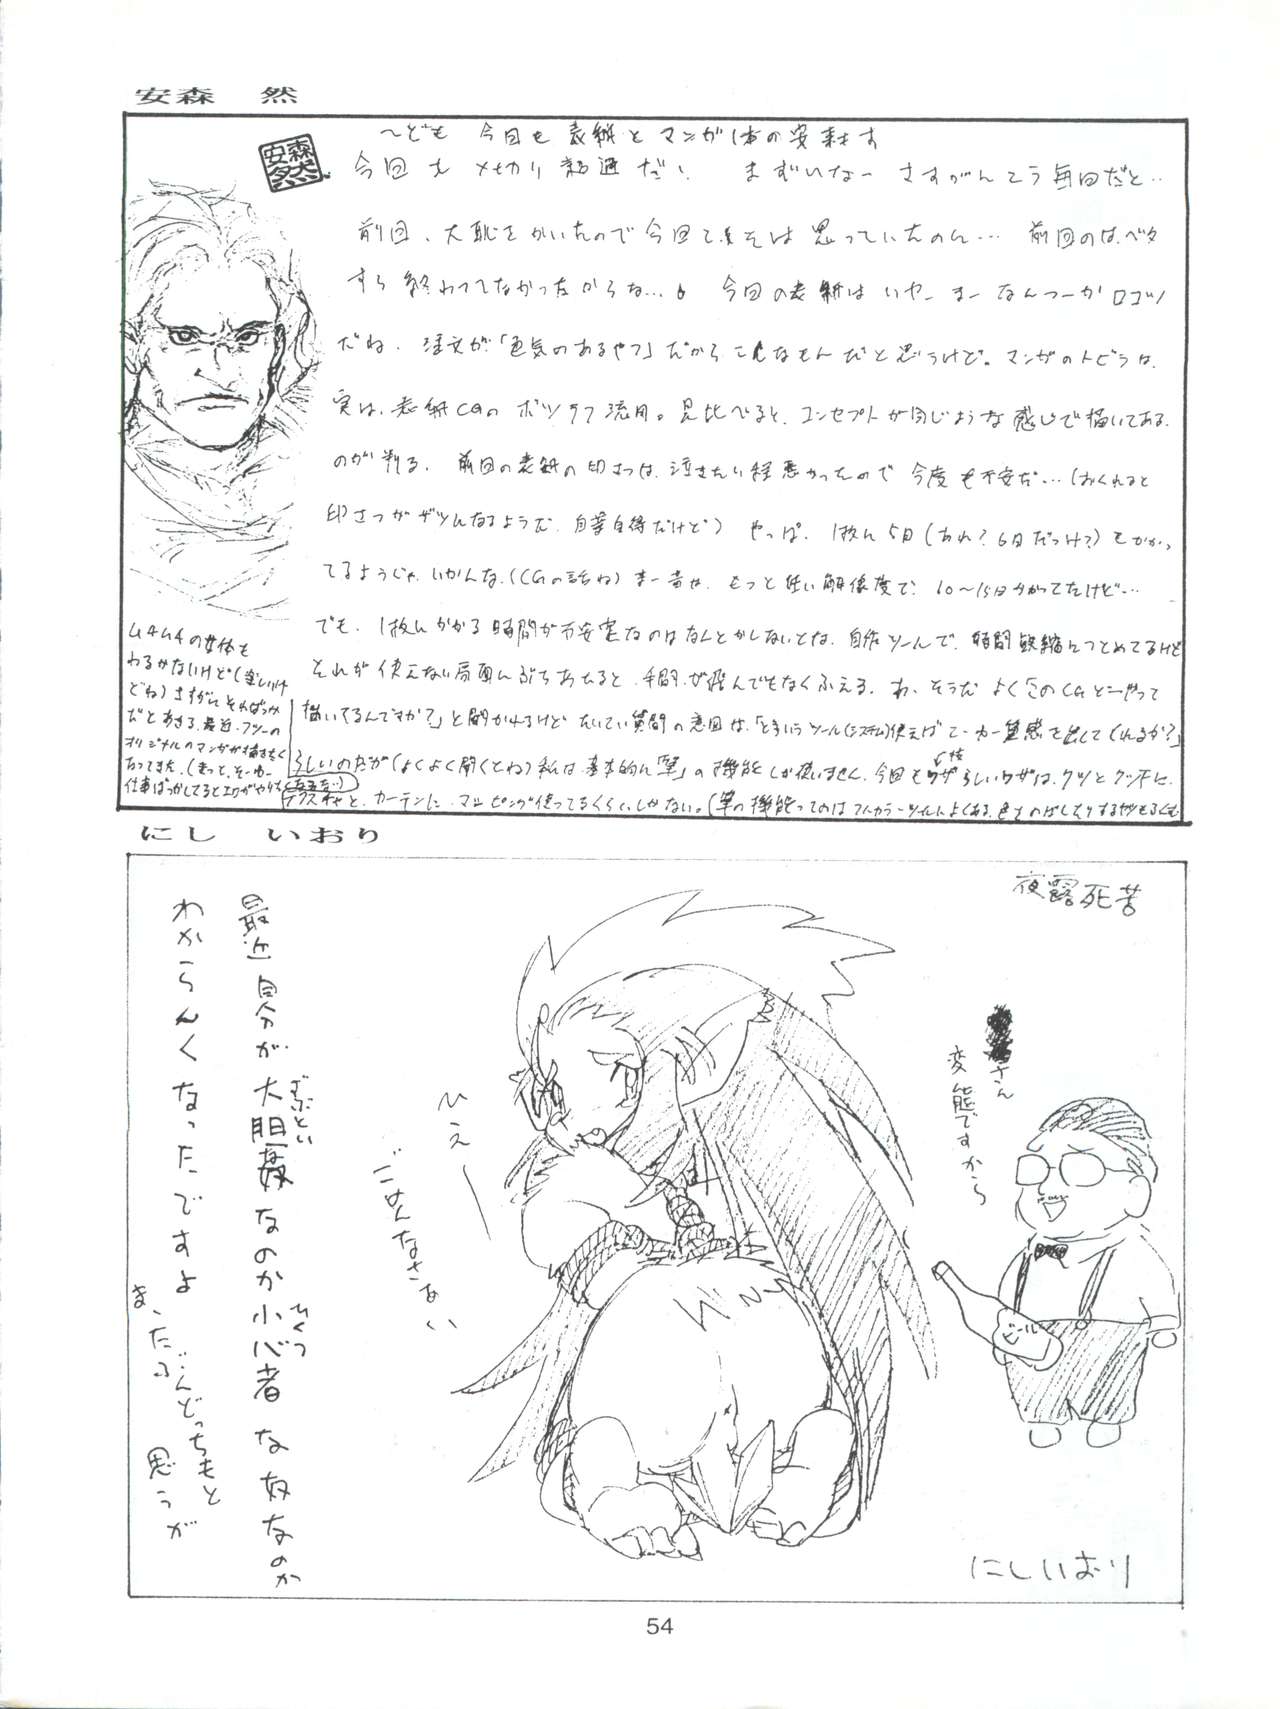 安森　然
安森然
〜ども 今回も表紙とマンガ1本の安森す
今回も メチャクリ超過だ、まずいなー さすがに こう毎回だと…
前回、大恥をかいたので今回こそは 思っていたのに… 前回のは、ベタ
すら 終わってなかったからな…。今回の表紙は いやー まー なんつーか ロコツ
だね、注文が「色気のあるやつ」だから こんなもんだと思うけど。マンガのトビラは、
実は、表紙CGの ボツラフ流用。見比べると、コンセプトが同じような感じで描いてある
のが判る。前回の表紙の印さつは、泣きたい程悪かったので 今度も不安だ…(おくれると
印さつがザツんなるようだ、自業自得だけど) やっぱ、1枚に5日(あれ？6日だっけ？)もかかっ
てるようじゃ、いかんな、(CGの話ね) まー昔は、もっと低い解像度で、10〜15日かかってたけど…
でも、1枚にかかる時間が不安定なのはなんとかしないとな、自作ツールで、時間短縮につとめてるけど
それが使えない局面にぶちあたると、手間が飛んでもなくふえる。あ、そうだ よく「このCGどーやって
描いてるんですか？」と聞かれるけど たいてい質問の意図は、「どういうツール(システム)使えば こーゆー質感を出してくれるか？」
らしいのだが(よくよく聞くとね) 私は、基本的に「筆」の機能しか使いません、今回も ワザらしいワザは、クツとクツ下に、
技
テクスチャと、カーテンに、マッピング使ってるくらいしかない。(筆の機能ってのは フルカラーツールによくある、色をのばしたりするやつもふくむ
ムチムチの女体も
わるかないけど(楽しいけ
どね) さすがに そればっか
だとあきる、最近、フツーの
オリジナルのマンガが描きたく
なってきた、(きっと、そーゆー
仕事ばっかしてると エロがやりたく
なるな…)
にし　いおり
夜露死苦
さん
変態ですから
ビール
ひえー
ごめんなさぁい
最近自分が大胆姦なのか小心者な奴なのか
ずぶとい
ひくつ
わからんくなったですよ
ま、たぶんどっちもと
思うが
にしいおり
54